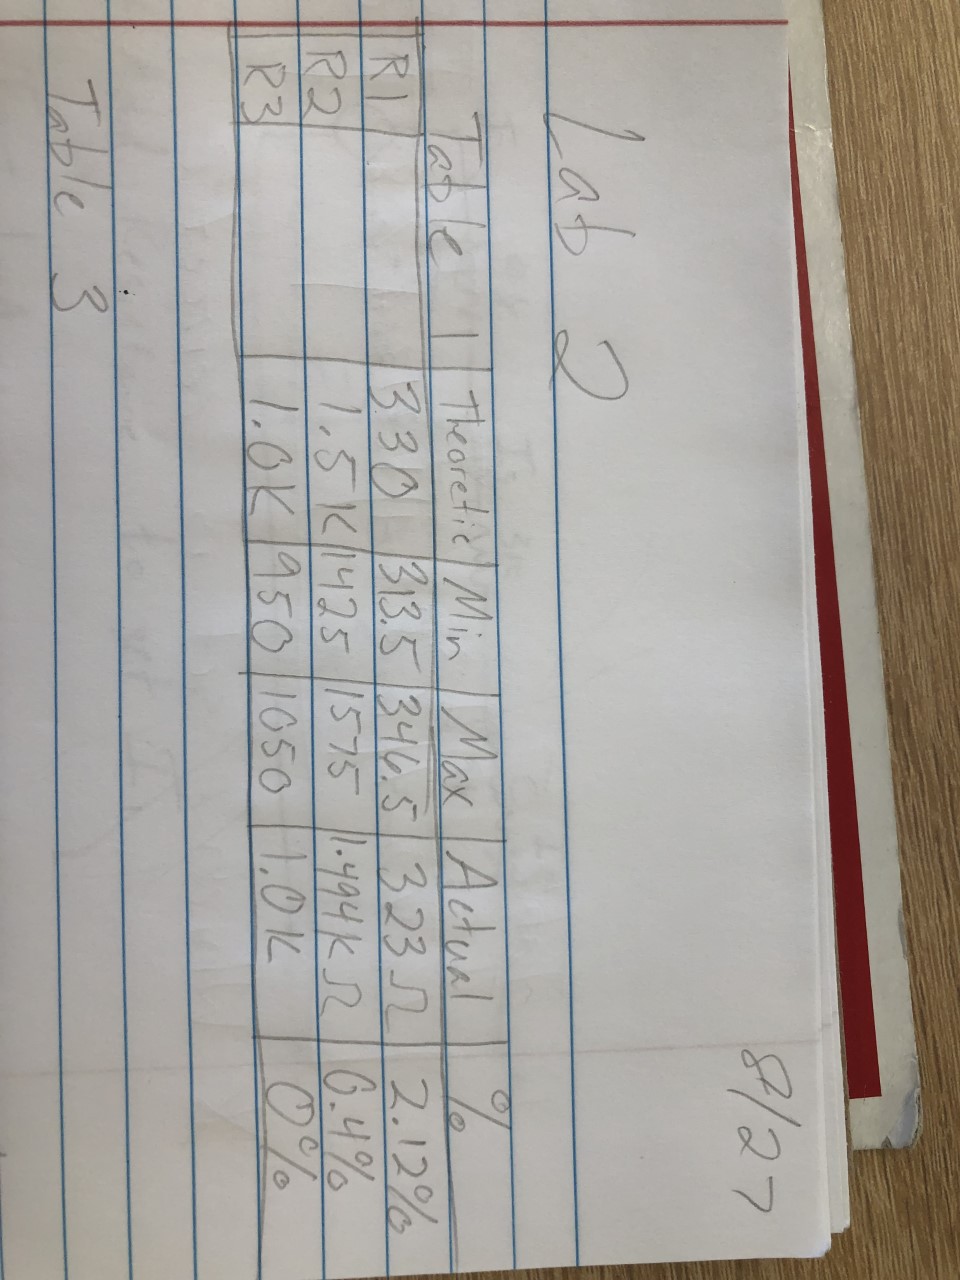 8/27
Lab 2
Table 1 Theoretic Min Max Actual %
R1 330 313.5 346.5 323Ω 2.12%
R2 1.5K 1425 1575 1.494KΩ 0.4%
R3 1.0K 950 1050 1.0K 0%
Table 3